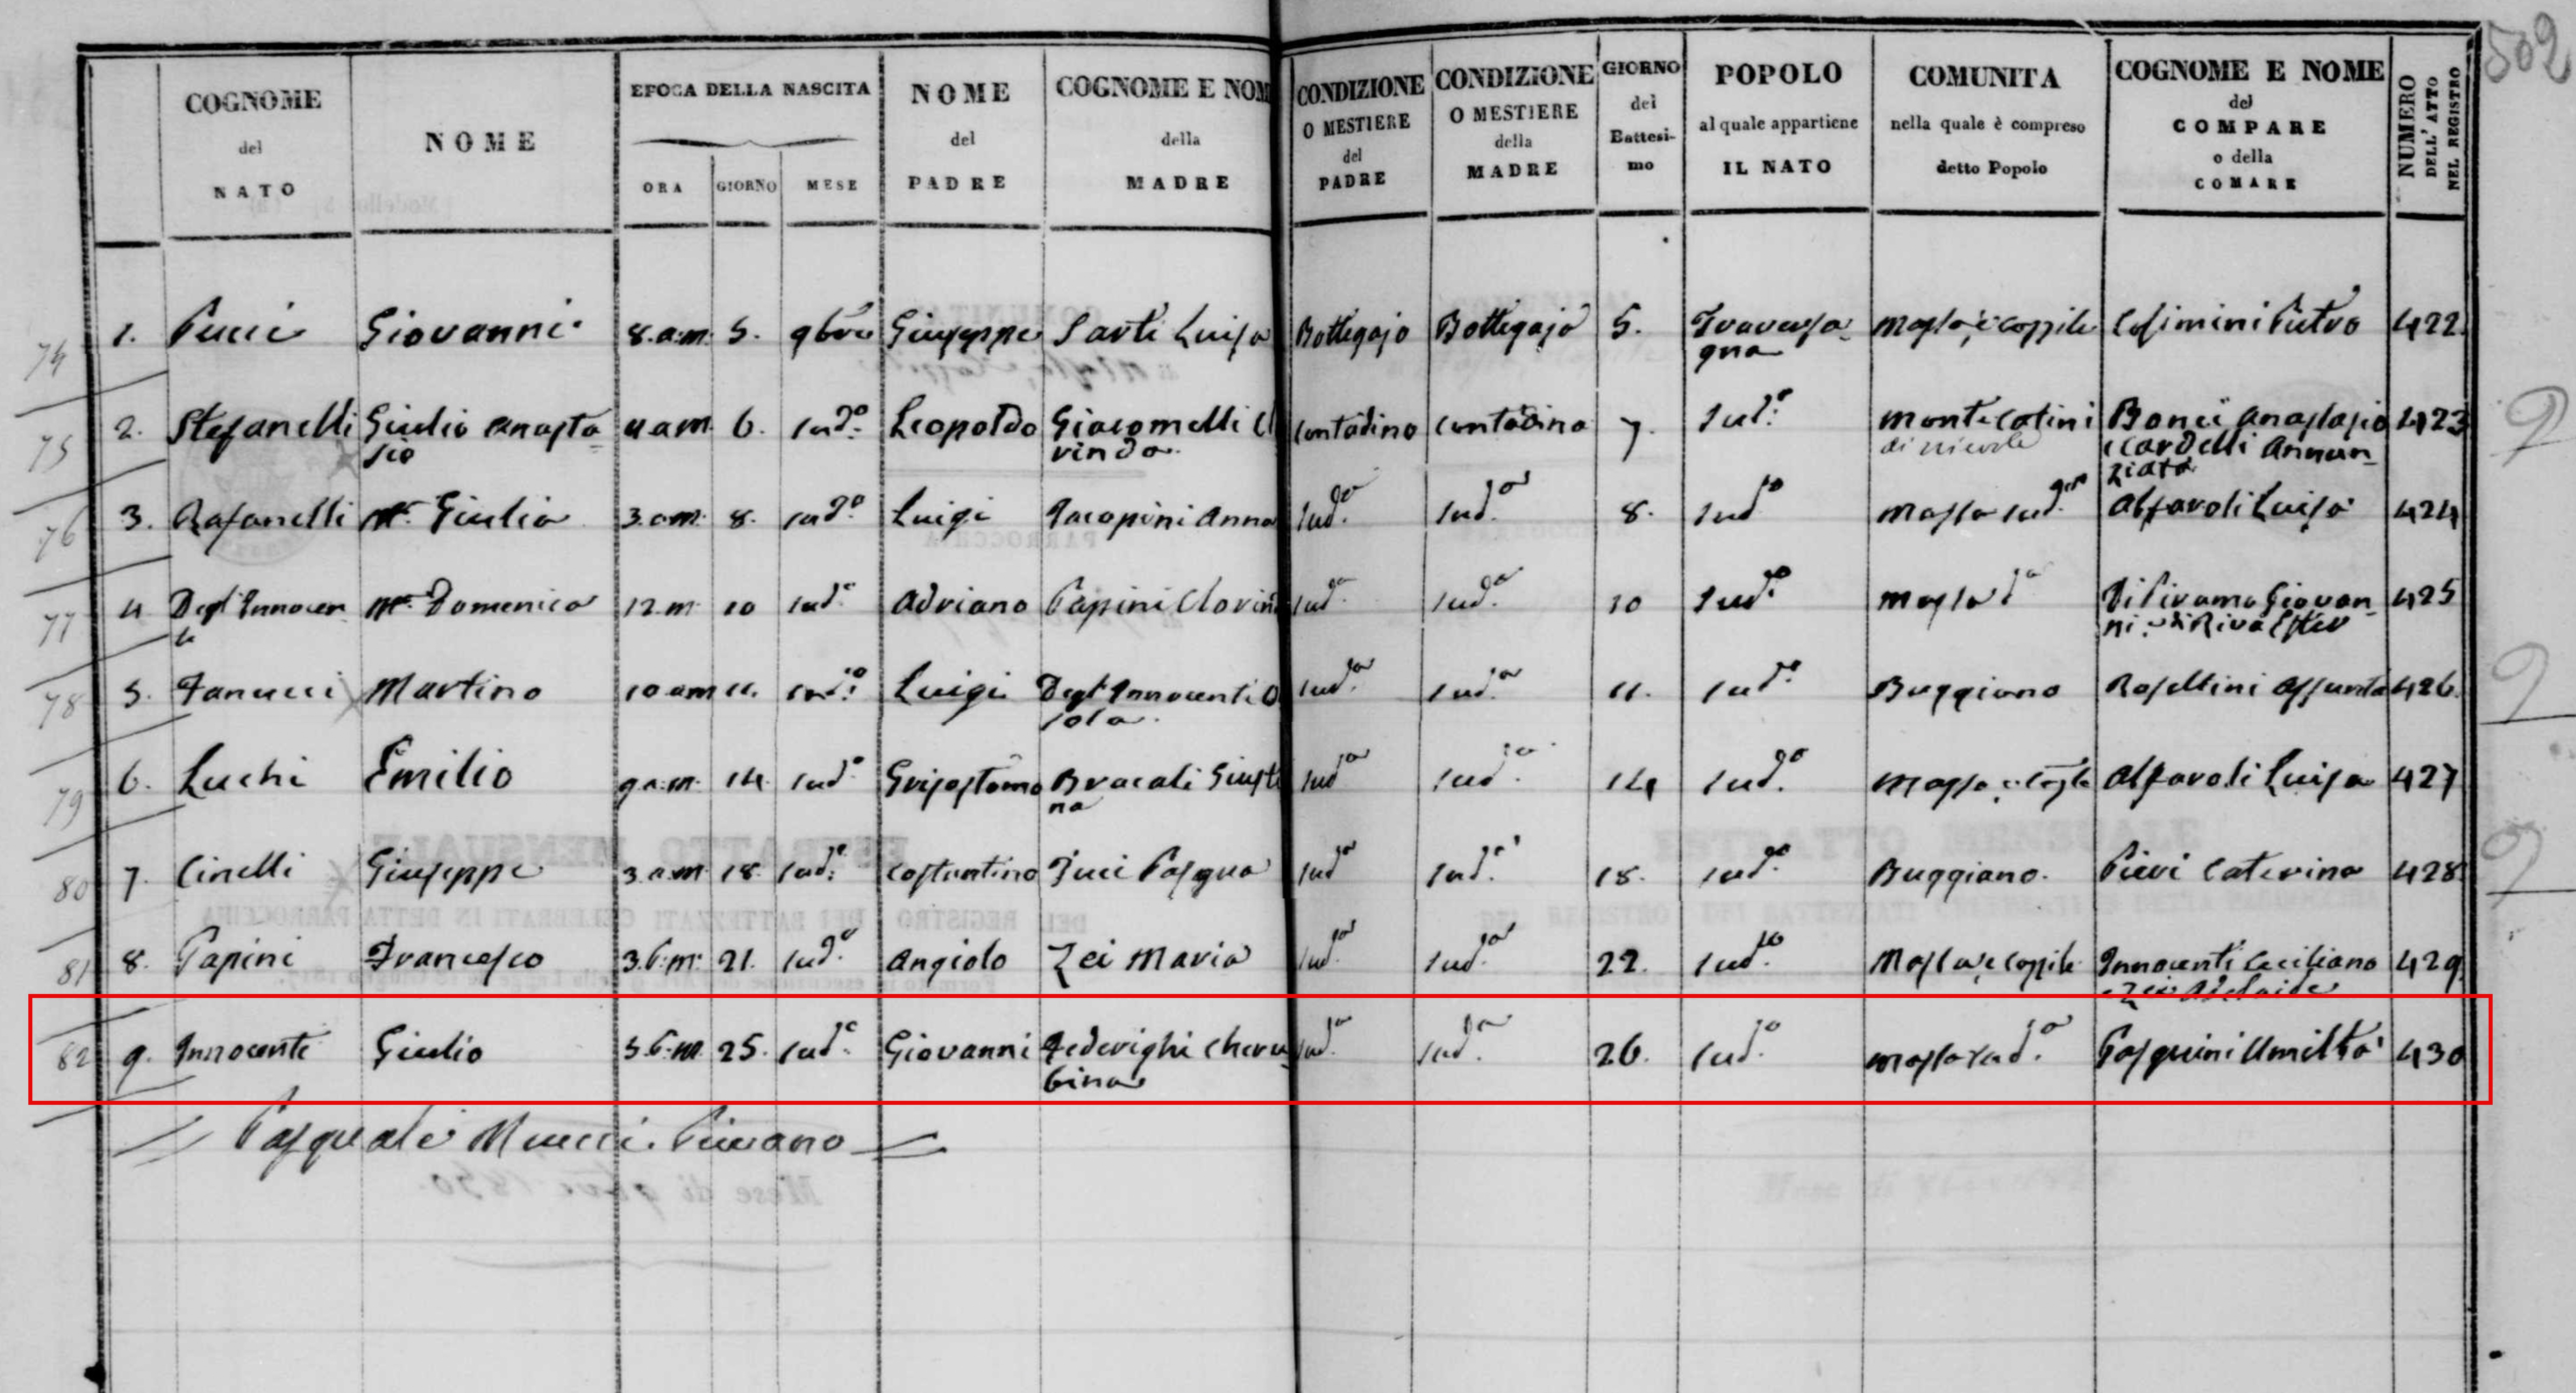 502
COGNOME del NATO | NOME | EPOCA DELLA NASCITA ORA GIORNO MESE | NOME del PADRE | COGNOME E NOM della MADRE | CONDIZIONE O MESTIERE del PADRE | CONDIZIONE O MESTIERE della MADRE | GIORNO del Battesi- mo | POPOLO al quale appartiene IL NATO | COMUNITA nella quale è compreso detto Popolo | COGNOME E NOME del COMPARE o della COMARE | NUMERO DELL' ATTO NEL REGISTRO
74 1. Pucci Giovanni 8.a.m. 5. 9bre Giuseppe Sarti Luisa Bottegajo Bottegaja 5. Traversa- gna Massa, e Cozzile Cosimini Pietro 422
75 2. Stefanelli Giulio Anasta- sio 4 a.m. 6. sud.o Leopoldo Giacomelli Cl rinda Contadino Contadina 7. sud.o Montecatini di nievole Bonci Anastasio e Cardelli Annun- ziata 423
76 3. Rafanelli Ma Giulia 3.a.m. 8. sud.o Luigi Jacopini Anna sud.o sud.a 8. sud.o Massa sud. Alfaroli Luisa 424
77 4 Degl'Innocen- ti Ma Domenica 12.m. 10 sud.o Adriano Papini Clorin sud.o sud.a 10 sud.o Massa d.a Giovan- ni 425
78 5. Fanucci Martino 10 a.m 11. sud.o Luigi Degl'Innocenti sud.o sud.a 11. sud.o Buggiano Rosellini Assunta 426
79 6. Luchi Emilio 9 a.m. 14. sud.o Grisostomo Bracali Giusti na sud.o sud.a 14 sud.o Massa e Cozzle Alfaroli Luisa 427
80 7. Cinelli Giuseppe 3.a.m. 18. sud.o Costantino Pasqua sud.o sud.a 18. sud.o Buggiano. Pieri Caterina 428
81 8. Papini Francesco 3.6.m. 21. sud.o Angiolo Zei Maria sud.o sud.a 22. sud.o Massa e Cozzile Innocenti Ceciliano e Zei Adelaide 429
82 9. Innocenti Giulio 5.6.m. 25. sud.o Giovanni Federighi Cheru bina sud.o sud.a 26. sud.o Massa sud.a Pasquini Umiltà 430
Pasquale Mucci. Pievano